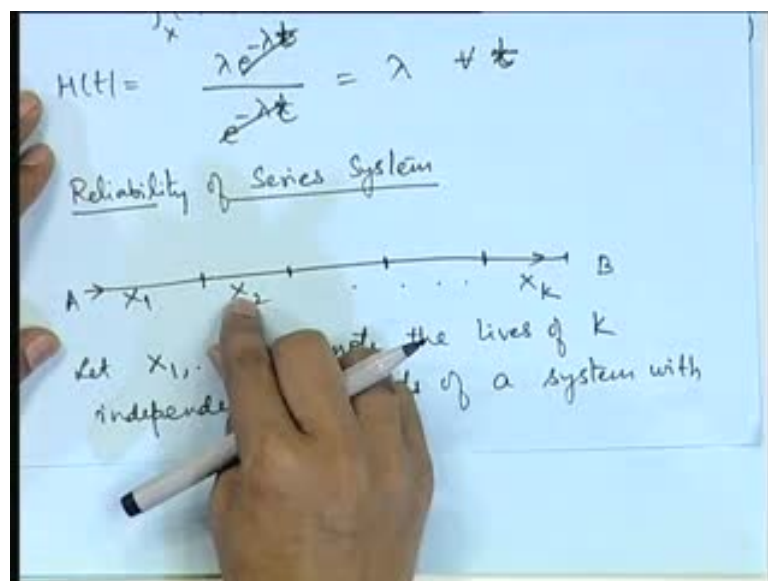 x
H(t) = λe^{-λt} / e^{-λt} = λ ∀ t
Reliability of Series System
A X1 X2 . . . . Xk B
Let X1, . the lives of k
of a system with